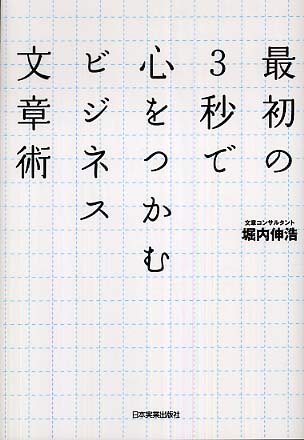 最初の
3秒で
心をつかむ
ビジネス
文章術
文章コンサルタント
堀内伸浩
日本実業出版社